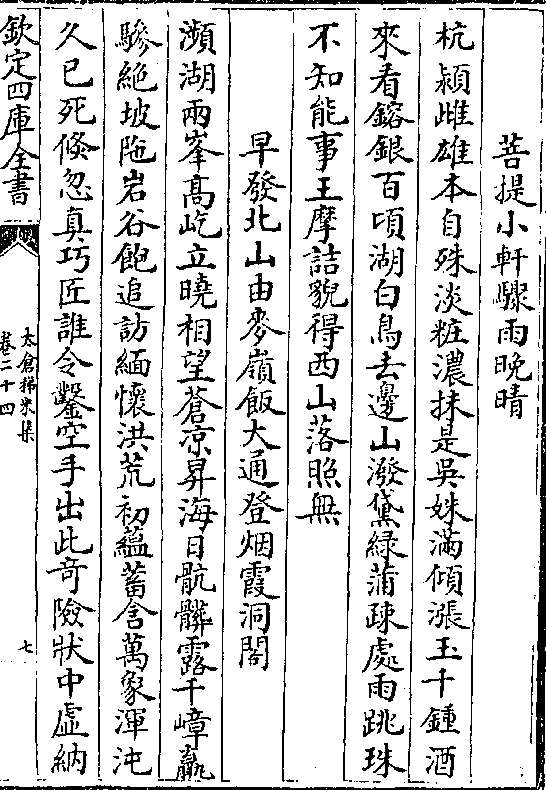 菩提小軒驟雨晚晴
杭潁雌雄本自殊淡粧濃抹是吳姝滿傾漲玉千鍾酒
來看鎔銀百頃湖白鳥去邊山潑黛綠蒲疎處雨跳珠
不知能事王摩詰貌得西山落照無
早發北山由麥嶺飯大通登烟霞洞閣
瀕湖兩峯高屹立曉相望蒼凉昇海日骯髒露千嶂驘
驂絕坡陁岩谷飽追訪緬懷洪荒初蘊蓄含萬象渾沌
久已死倐忽真巧匠誰令鑿空手出此奇險狀中虛納
欽定四庫全書
太倉稊米集
卷二十四
七